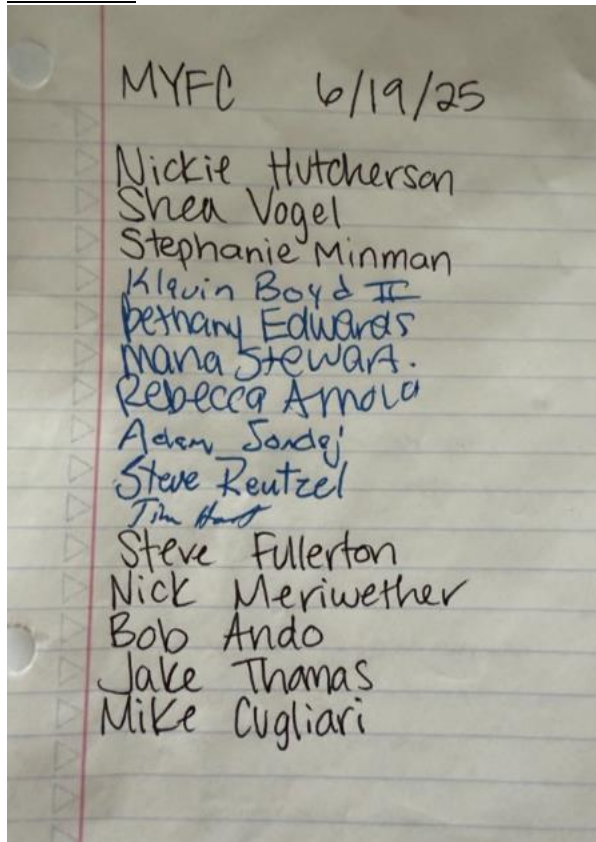 MYFC 6/19/25
Nickie Hutcherson
Shea Vogel
Stephanie Minman
Klavin Boyd II
Bethany Edwards
Maria Stewart.
Rebecca Arnold
Adam Sondej
Steve Reutzel
Tim Hart
Steve Fullerton
Nick Meriwether
Bob Ando
Jake Thomas
Mike Cugliari